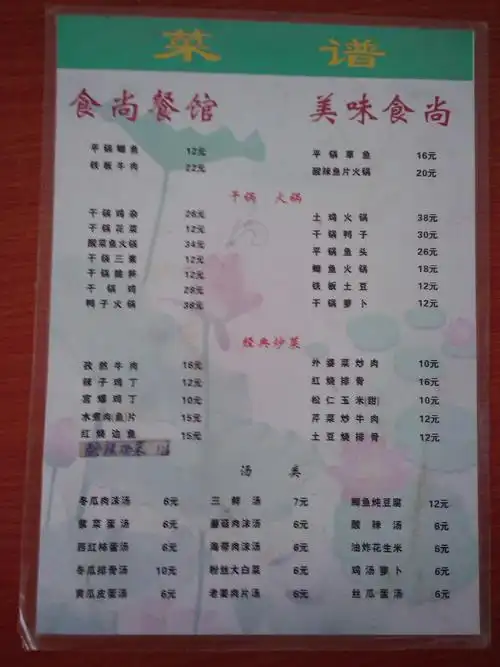 菜 谱
食尚餐馆 美味食尚
平锅鲫鱼 12元 平锅草鱼 16元
铁板牛肉 22元 酸辣鱼片火锅 20元
干锅 火锅
干锅鸡杂 28元 土鸡火锅 38元
干锅花菜 12元 干锅鸭子 30元
酸菜鱼火锅 34元 平锅鱼头 26元
干锅三素 12元 鲫鱼火锅 18元
干锅脆笋 12元 铁板土豆 12元
干锅鸡 28元 干锅萝卜 12元
鸭子火锅 38元
经典炒菜
孜然牛肉 16元 外婆菜炒肉 10元
辣子鸡丁 12元 红烧排骨 16元
宫爆鸡丁 10元 松仁玉米(甜) 10元
水煮肉(鱼)片 15元 芹菜炒牛肉 12元
红烧边鱼 15元 土豆烧排骨 12元
汤 类
冬瓜肉沫汤 6元 三鲜汤 7元 鲫鱼炖豆腐 12元
紫菜蛋汤 6元 蘑菇肉沫汤 6元 酸辣汤 6元
西红柿蛋汤 6元 海带肉沫汤 6元 油炸花生米 6元
冬瓜排骨汤 10元 粉丝大白菜 6元 鸡汤萝卜 6元
黄瓜皮蛋汤 6元 老姜肉片汤 6元 丝瓜蛋汤 6元